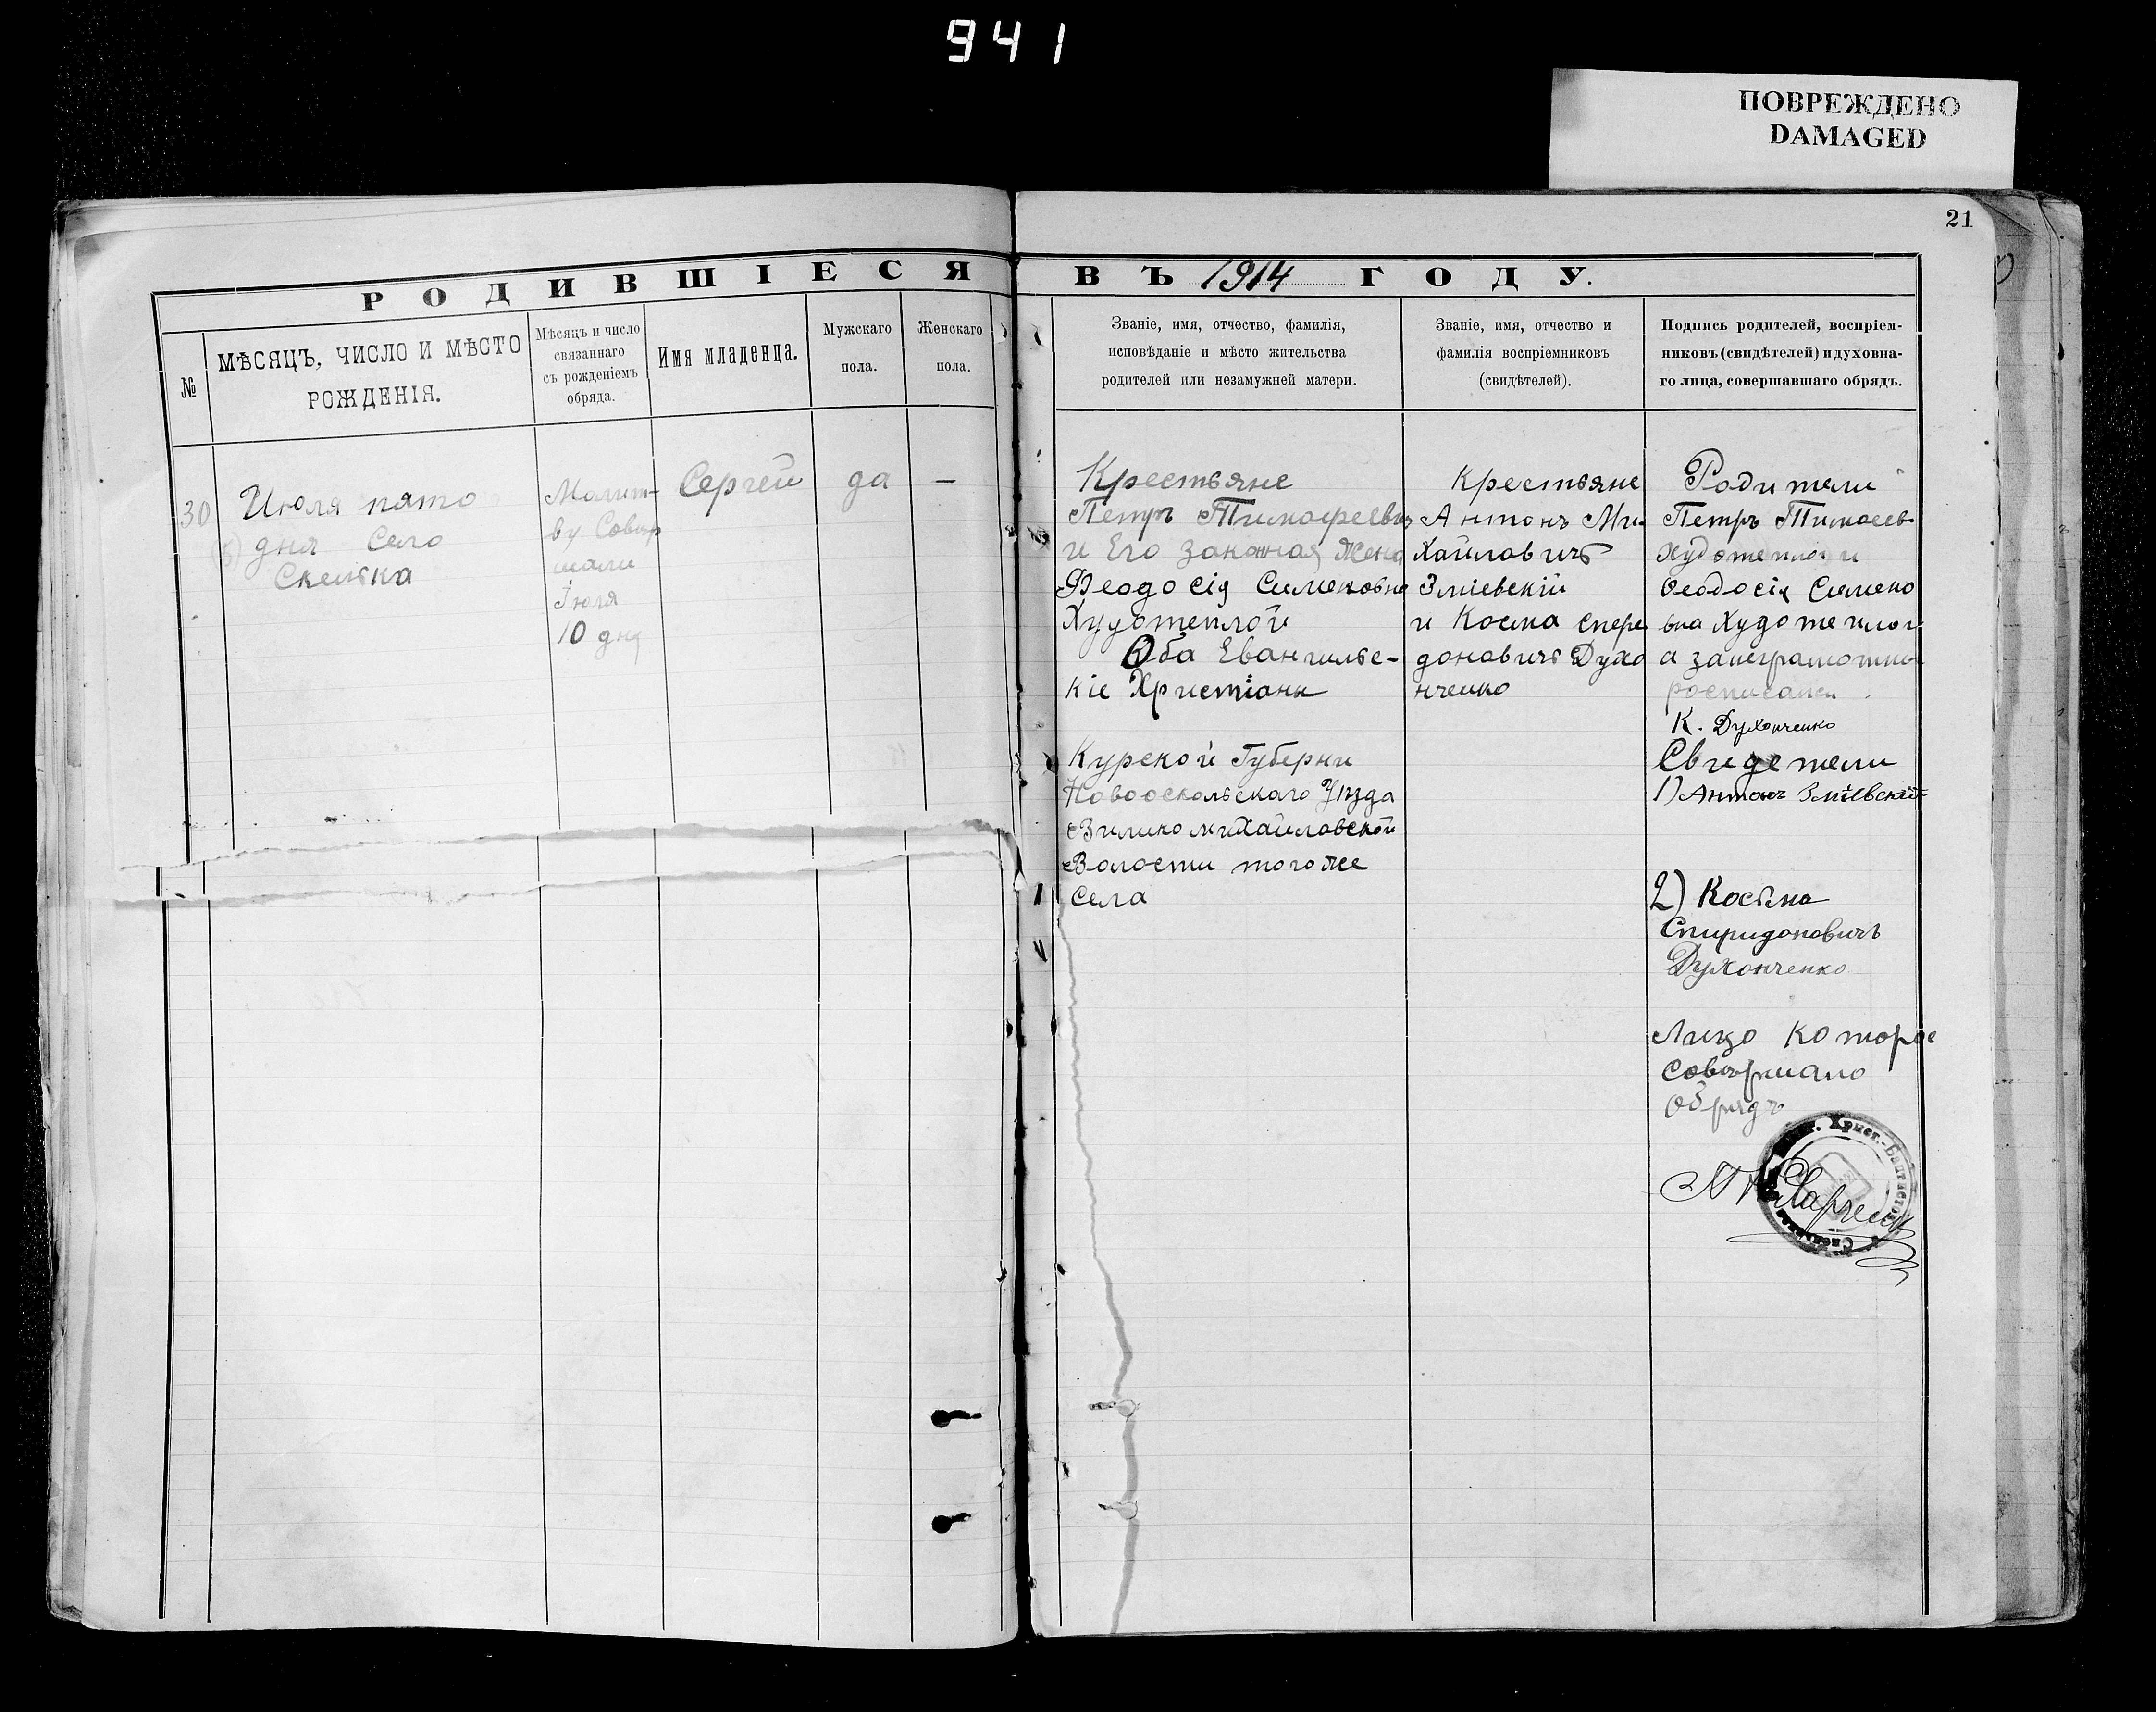 941
ПОВРЕЖДЕНО
DAMAGED
21
РОДИВШІЕСЯ ВЪ 1914 ГОДУ.
№
МѢСЯЦЪ, ЧИСЛО И МѢСТО
РОЖДЕНІЯ.
Мѣсяцъ и число
связаннаго
съ рожденіемъ
обряда.
Имя младенца.
Мужскаго
пола.
Женскаго
пола.
Званіе, имя, отчество, фамилія,
исповѣданіе и мѣсто жительства
родителей или незамужней матери.
Званіе, имя, отчество и
фамилія воспріемниковъ
(свидѣтелей).
Подпись родителей, воспріем-
никовъ (свидѣтелей) и духовна-
го лица, совершавшаго обрядъ.
30
Июля пято
(5) дня Село
Скелька
Молит-
ву Совер
шали
Iюля
10 дня
Сергей
да
—
Крестьяне
Петръ Тимофеевичъ
и Его законная Жена
Феодосія Симоновна
Худотеплой
Оба Евангильс-
кіе Христіани
Курской Губерни
Новооскольскаго Уѣзда
Вилико михайловской
Волости того же
Села
Крестьяне
Антонъ Ми-
хайловичъ
Зміевскій
и Косма Спере
доновичъ Духо
нченко
Родители
Петръ Тимоеев
Худотеплой и
Феодосія Симоно
вна Худотеплой
а за неграмотны
росписался
К. Духонченко
Свидетели
1) Антонъ Зміевскій
2) Косьма
Спиридоновичъ
Духонченко
Лицо которое
Совершало
Обрядъ
Христ.-Баптистовъ